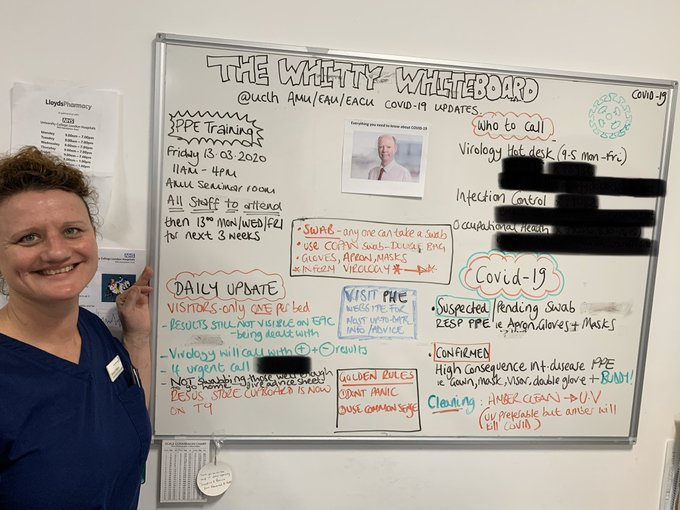 THE WHITTY WHITEBOARD
@uclh AMU/EAU/EACU COVID-19 UPDATES
COVID-19
LloydsPharmacy
NHS
University College London Hospitals
Monday
Tuesday
Wednesday
Thursday
Friday
PPE Training
Friday 13.03.2020
11AM - 4PM
AMU Seminar room
All Staff to attend
then 13:00 MON/WED/FRI
for next 3 weeks
Everything you need to know about COVID-19
WHO to call
Virology Hot desk (9-5 Mon-Fri)
Infection Control
Occupational Health
• SWAB - any one can take a swab
• USE COPAN Swab - DOUBLE BAG
• GLOVES, APRON, MASKS
* INFORM VIROLOGY *
DAILY UPDATE
VISITORS - only ONE per bed
- RESULTS STILL NOT VISIBLE ON EPIC
- being dealt with
- Virology will call with + + - results
- If urgent call
- NOT Swabbing those well enough
to go home - give advice sheet
RESUS STORE CUPBOARD IS NOW
ON T9
VISIT PHE
WEBSITE FOR
MOST UP-TO-DATE
INFO/ADVICE
GOLDEN RULES
① DONT PANIC
② USE COMMON SENSE
Covid-19
• Suspected/Pending Swab
RESP PPE ie Apron, Gloves + Masks
• CONFIRMED
High Consequence Inf. disease PPE
ie Gown, mask, visor, double glove + BUDDY!
Cleaning: AMBER CLEAN → U.V
(UV preferable but amber will
kill COVID)